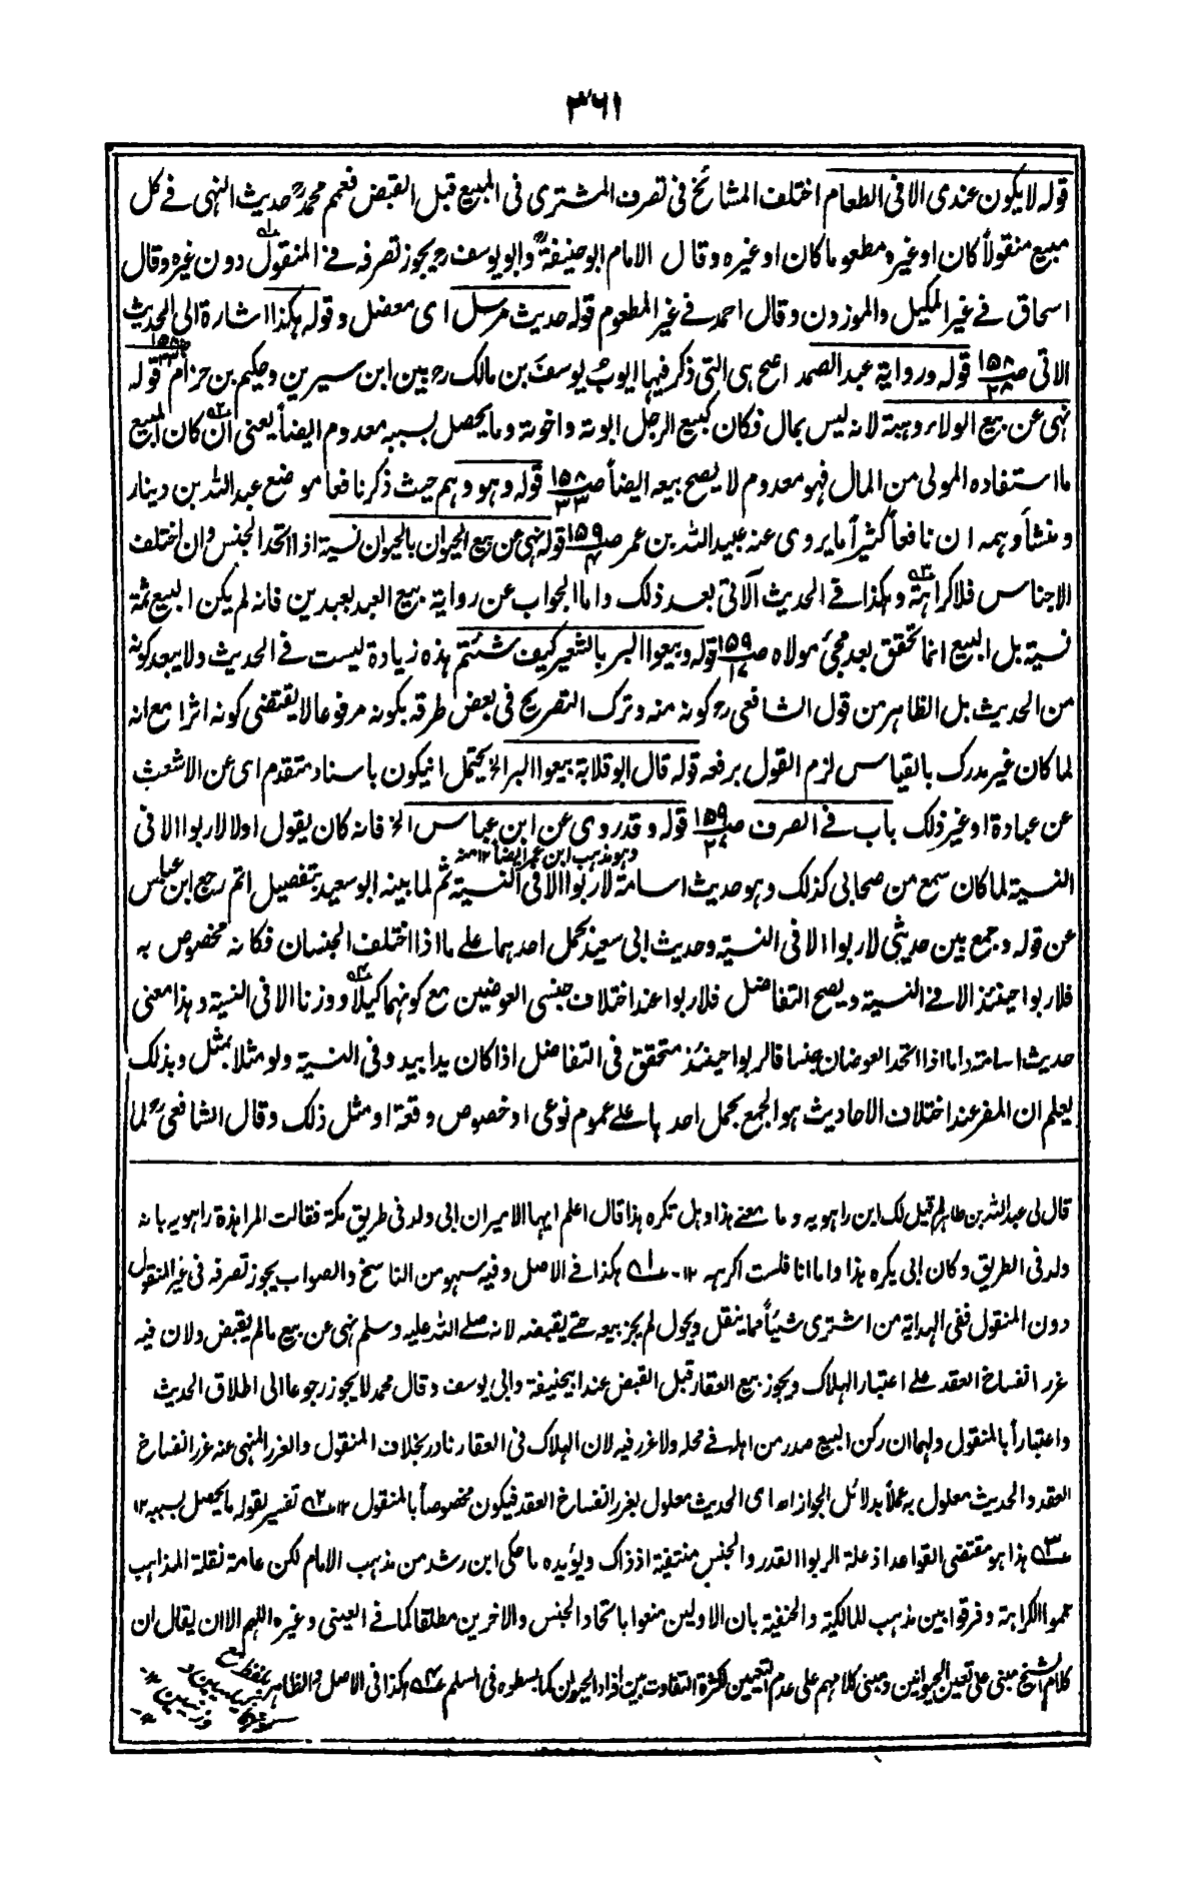 ٣٦١
قوله لا يكون عندى الا فى الطعام اختلف المشائخ فى تصرف المشترى فى المبيع قبل القبض فعمم محمدؒ حديث النهى فے كل
مبيع منقولاً كان او غيره مطعوما كان او غيره وقال الامام ابو حنيفةؒ وابو يوسفؒ يجوز تصرفه فے المنقول دون غيره وقال
اسحاق فے غير المكيل والموزون وقال احمد فے غير المطعوم قوله حديث مرسل اى معضل وقوله هكذا اشارة الى الحديث
الاتى ص١٥٨/٢٨ قوله ورواية عبد الصمد اصح هى التى ذكر فيها ايوبُ يوسفَ بن مالك رح بين ابن سيرين وحكيم بن حزام ص١٥٨/٣٣ قوله
نهى عن بيع الولاء وهبته لانه ليس بمال فكان كبيع الرجل ابوته واخوته وما يحصل بسببه معدوم ايضاً يعنى ان كان المبيع
ما استفاده المولى من المال فهو معدوم لا يصح بيعه ايضاً ص١٥٨/٣٣ قوله وهو وهم حيث ذكر نافعا موضع عبد الله بن دينار
ومنشأ وهمه ان نافعاً كثيراً ما يروى عنه عبيد الله بن عمر ص١٥٩/٤ قوله نهى عن بيع الحيوان بالحيوان نسية اذا اتحد الجنس وان اختلف
الاجناس فلا كراهة وهكذا فے الحديث الآتى بعد ذلك واما الجواب عن رواية بيع العبد بعبدين فانه لم يكن البيع ثمة
نسية بل البيع انما تحقق بعد مجئ مولاه ص١٥٩/١٤ قوله وبيعوا البر بالشعير كيف شئتم هذه زيادة ليست فے الحديث ولا يبعد كونه
من الحديث بل الظاهر من قول الشافعى رح كونه منه وترك التصريح فى بعض طرقه بكونه مرفوعا لا يقتضى كونه اثرا مع انه
لما كان غير مدرك بالقياس لزم القول برفعه قوله قال ابو قلابة بيعوا البر الخ يحتمل انيكون باسناد متقدم اى عن الاشعث
عن عبادة او غير ذلك باب فے الصرف ص١٥٩/٢٤ قوله وقد روى عن ابن عباس الخ فانه كان يقول اولا لا ربوا الا فى
وهو مذهب ابن عمر ايضا ١٢ منه
النسية لما كان سمع من صحابى كذلك وهو حديث اسامة لا ربوا الا فى النسية ثم لما بينه ابو سعيد بتفصيل اتم رجع ابن عباس
عن قوله وجمع بين حديثى لا ربوا الا فى النسية وحديث ابى سعيد بحمل احدهما على ما اذا اختلف الجنسان فكانه مخصوص به
فلا ربوا حينئذ الا فے النسية ويصح التفاضل فلا ربوا عند اختلاف جنسى العوضين مع كونهما كيلا ووزنا الا فى النسية وهذا معنى
حديث اسامة واما اذا اتحد العوضان جنسا فالربوا حينئذ متحقق فى التفاضل اذا كان يدا بيد وفى النسية ولو مثلا بمثل وبذلك
يعلم ان المفر عند اختلاف الاحاديث هو الجمع بحمل احدها على عموم نوعى او خصوص وقعة او مثل ذلك وقال الشافعىؒ لما
قال لى عبد الله بن طاهر لم قيل لك ابن راهويه وما معنے هذا وهل تكره هذا قال اعلم ايها الامير ان ابى ولد فى طريق مكة فقالت المراهذة راهويه بانه
ولد فى الطريق وكان ابى يكره هذا واما انا فلست اكرهه ١٢۔ ١ هكذا فے الاصل وفيه سهو من الناسخ والصواب يجوز تصرفه فى غير المنقول
دون المنقول ففى الهداية من اشترى شيئاً مما ينقل ويحول لم يجز بيعه حتى يقبضه لانه صلے الله عليه وسلم نهى عن بيع ما لم يقبض ولان فيه
غرر انفساخ العقد على اعتبار الهلاك ويجوز بيع العقار قبل القبض عند ابيحنيفة وابى يوسف وقال محمد لا يجوز رجوعا الى اطلاق الحديث
واعتباراً بالمنقول ولهما ان ركن البيع صدر من اهله فے محله ولا غرر فيه لان الهلاك فى العقار نادر بخلاف المنقول والغرر المنهى عنه غرر انفساخ
العقد والحديث معلول به عملاً بدلائل الجواز اه اى الحديث معلول بغرر انفساخ العقد فيكون مخصوصاً بالمنقول ١٢ ٢ تفسير لقوله ما يحصل بسببه ١٢
٣ هذا هو مقتضى القواعد اذ علة الربوا القدر والجنس منتفية اذ ذاك ويؤيده ما حكى ابن رشد من مذهب الامام لكن عامة نقلة المذاهب
عمموا الكراهة وفرقوا بين مذهب للمالكية والحنفية بان الاولين منعوا باتحاد الجنس والآخرين مطلقا كما فے العينى وغيره اللهم الا ان يقال ان
كلام الشيخ مبنى على تعين الحيوانين ومبنى كلامهم على عدم التعيين لكثرة التفاوت بين افراد الحيوان كما بسطوه فى السلم ٤ هكذا فى الاصل والظاهر